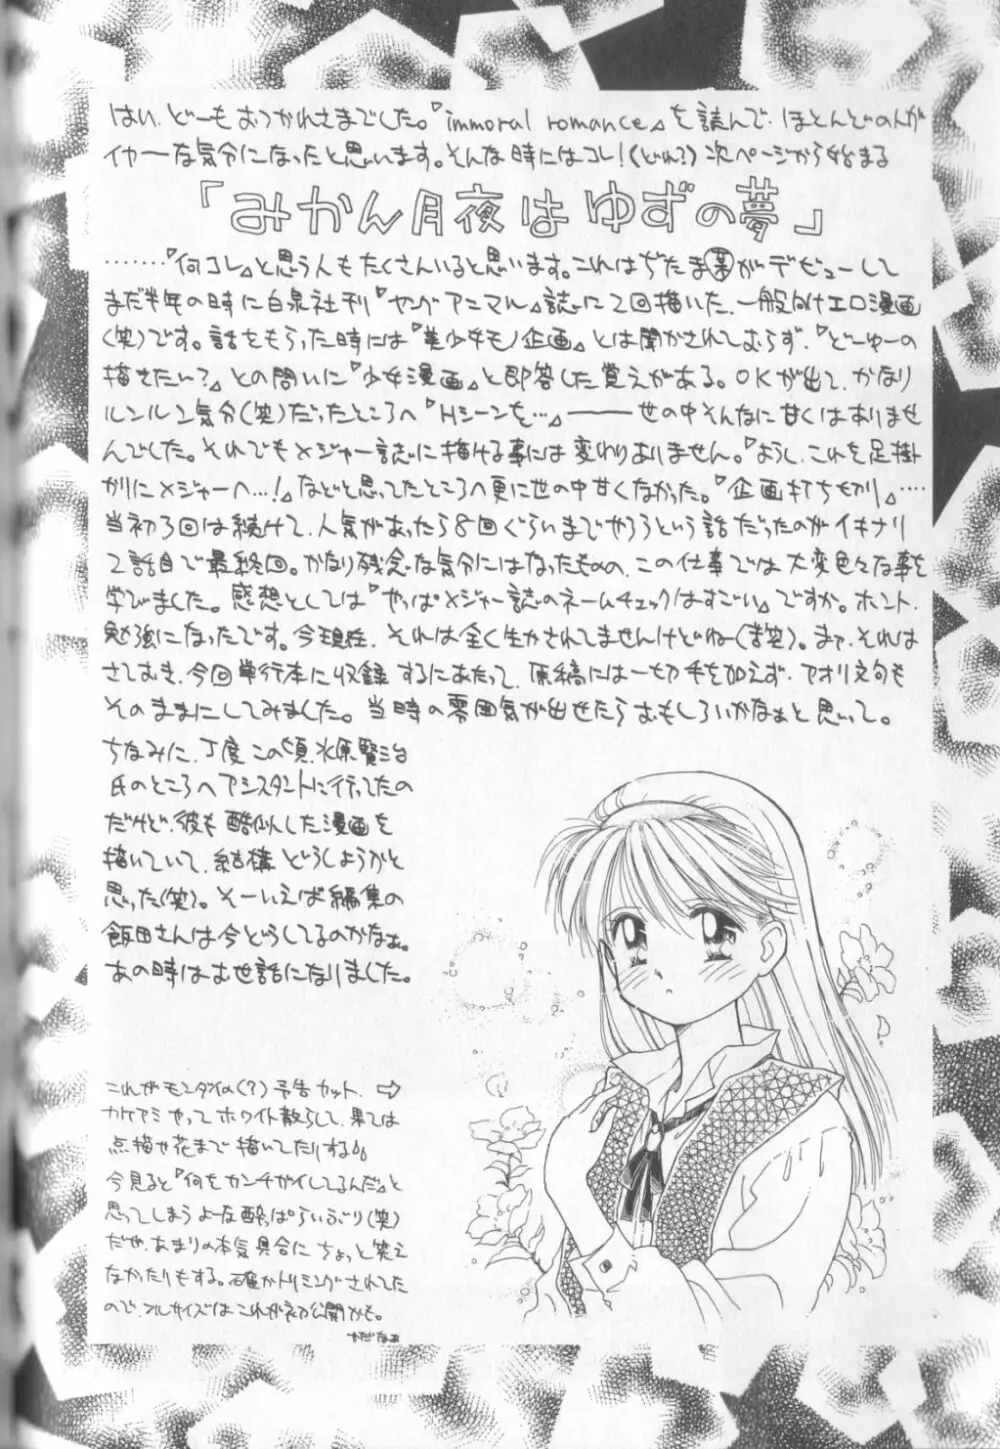 はい、どーもおつかれさまでした。『immoral romance』を読んで、ほとんどの人が
イヤーな気分になったと思います。そんな時にはコレ!(どれ?)次ページから始まる
「みかん月夜はゆずの夢」
……『何コレ』と思う人もたくさんいると思います。これはぢたま(某)がデビューして
まだ半年の時に白泉社刊『ヤングアニマル』誌に2回描いた、一般向けエロ漫画
(笑)です。話をもらった時には『美少女モノ企画』とは聞かされておらず、『どーゆーの
描きたい?』との問いに『少女漫画』と即答した覚えがある。OKが出て、かなり
ルンルン気分(笑)だったところへ『Hシーンを…』――世の中そんなに甘くはありませ
んでした。それでもメジャー誌に描ける事には変わりありません。『ようし、これを足掛
かりにメジャーへ…!』などと思ってたところへ更に世の中甘くなかった。『企画打ち切り』‥‥
当初3回は続けて、人気があったら8回ぐらいまでやろうという話だったのがイキナリ
2話目で最終回。かなり残念な気分にはなったものの、この仕事では大変色々な事を
学びました。感想としては『やっぱメジャー誌のネームチェックはすごい』ですか。ホント、
勉強になったです。今現在、それは全く生かされてませんけどね(苦笑)。まァ、それは
さておき、今回単行本に収録するにあたって、原稿には一切手を加えず、アオリ文句も
そのままにしてみました。当時の雰囲気が出せたらおもしろいかなぁと思って。
ちなみに、丁度この頃、水原賢治
氏のところへアシスタントに行ってたの
だけど、彼も酷似した漫画を
描いていて、結構どうしようかと
思った(笑)。そーいえば編集の
飯田さんは今どうしてるのかなぁ。
あの時はお世話になりました。
これがモンダイの(?)予告カット。⇨
カケアミやってホワイト散らして、果ては
点描や花まで描いてたりする。
今見ると『何をカンチガイしてるんだ』と
思ってしまうよーな酔っぱらいぶり(笑)
だや、あまりの本気具合にちょっと笑え
なかったりもする。確かトリミングされてた
ので、フルサイズはこれが初公開かも。
かだなぁ